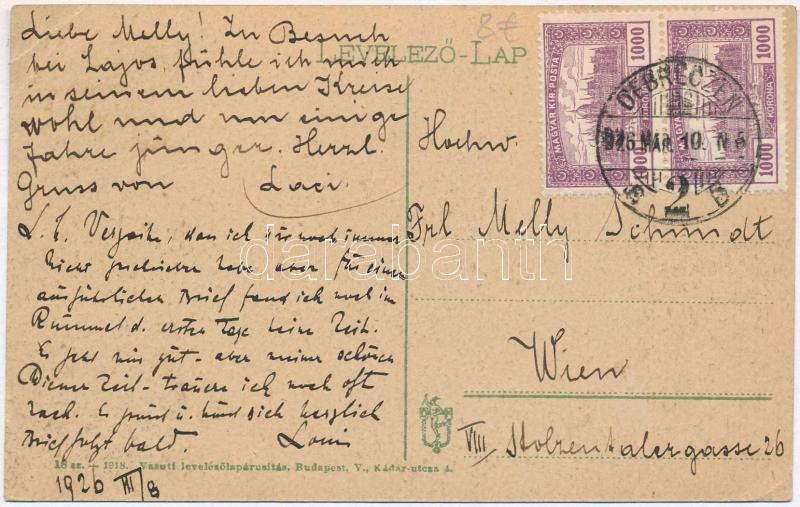 8 €
LEVELEZŐ-LAP
Liebe Melly! In Besuch
bei Lajos fühle ich mich
in seinem lieben Kreise
wohl und um einige
Jahre jünger. Herzl.
Gruss von Laci.
L. M. Verzeihe, dass ich Dir noch immer
nicht geschrieben habe aber für einen
ausführlichen Brief fand ich noch im
Rummel d. ersten Tage keine Zeit.
Es geht mir gut - aber meiner schönen
Wiener Zeit - trauere ich noch oft
nach. Es grüsst u. küsst Dich herzlich
Brief folgt bald. Louis
18 sz. — 1918. Vasuti levelezőlapárusitás, Budapest, V., Kádár-utcza 4.
1926 III/8
1000
1000
MAGYAR KIR. POSTA
KORONA
1000
DEBRECZEN
926 MÁR. 10. N 5
2
Hochw.
Frl Melly Schmidt
Wien
VIII Stolzentalergasse 26
darabanth